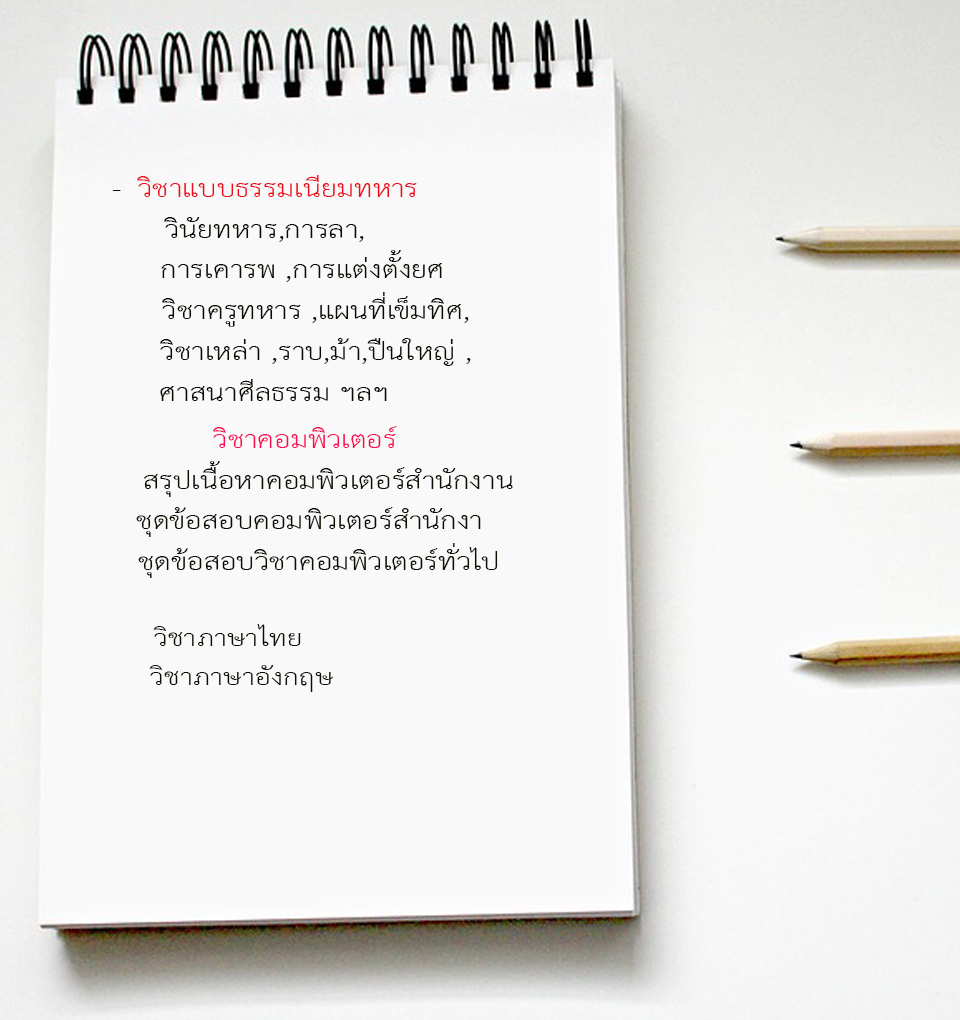 - วิชาแบบธรรมเนียมทหาร
วินัยทหาร,การลา,
การเคารพ ,การแต่งตั้งยศ
วิชาครูทหาร ,แผนที่เข็มทิศ,
วิชาเหล่า ,ราบ,ม้า,ปืนใหญ่ ,
ศาสนาศีลธรรม ฯลฯ
วิชาคอมพิวเตอร์
สรุปเนื้อหาคอมพิวเตอร์สำนักงาน
ชุดข้อสอบคอมพิวเตอร์สำนักงา
ชุดข้อสอบวิชาคอมพิวเตอร์ทั่วไป
วิชาภาษาไทย
วิชาภาษาอังกฤษ